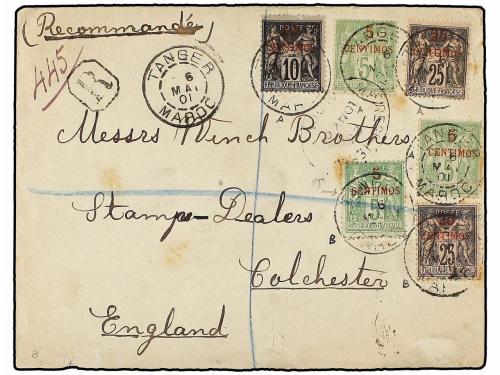 (Recommandé)
445
R
TANGER
6
MAI
01
MAROC
POSTE
10
REPUBLIQUE FRANÇAISE
5
CENTIMOS
25
Messrs Winch Brothers
5
CENTIMOS
5
CENTIMOS
Stamp-Dealers
25
Colchester
England
A
A
A
B
B
8